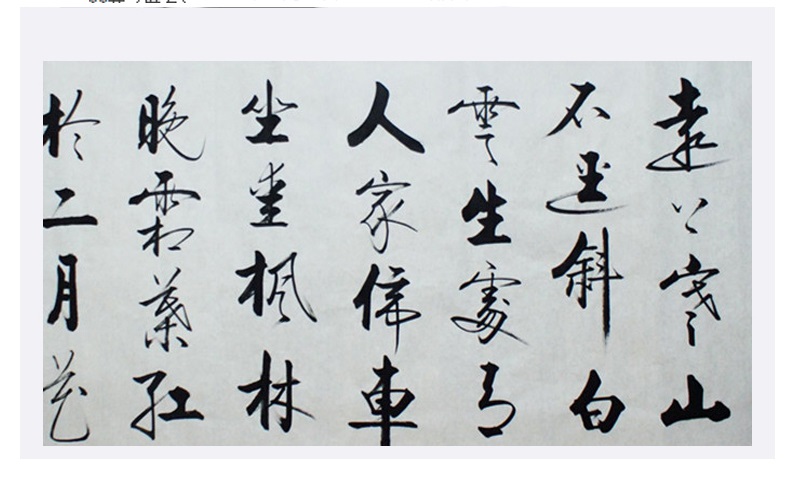 遠上寒山
石逕斜白
雲生處有
人家停車
坐愛楓林
晚霜葉紅
於二月花